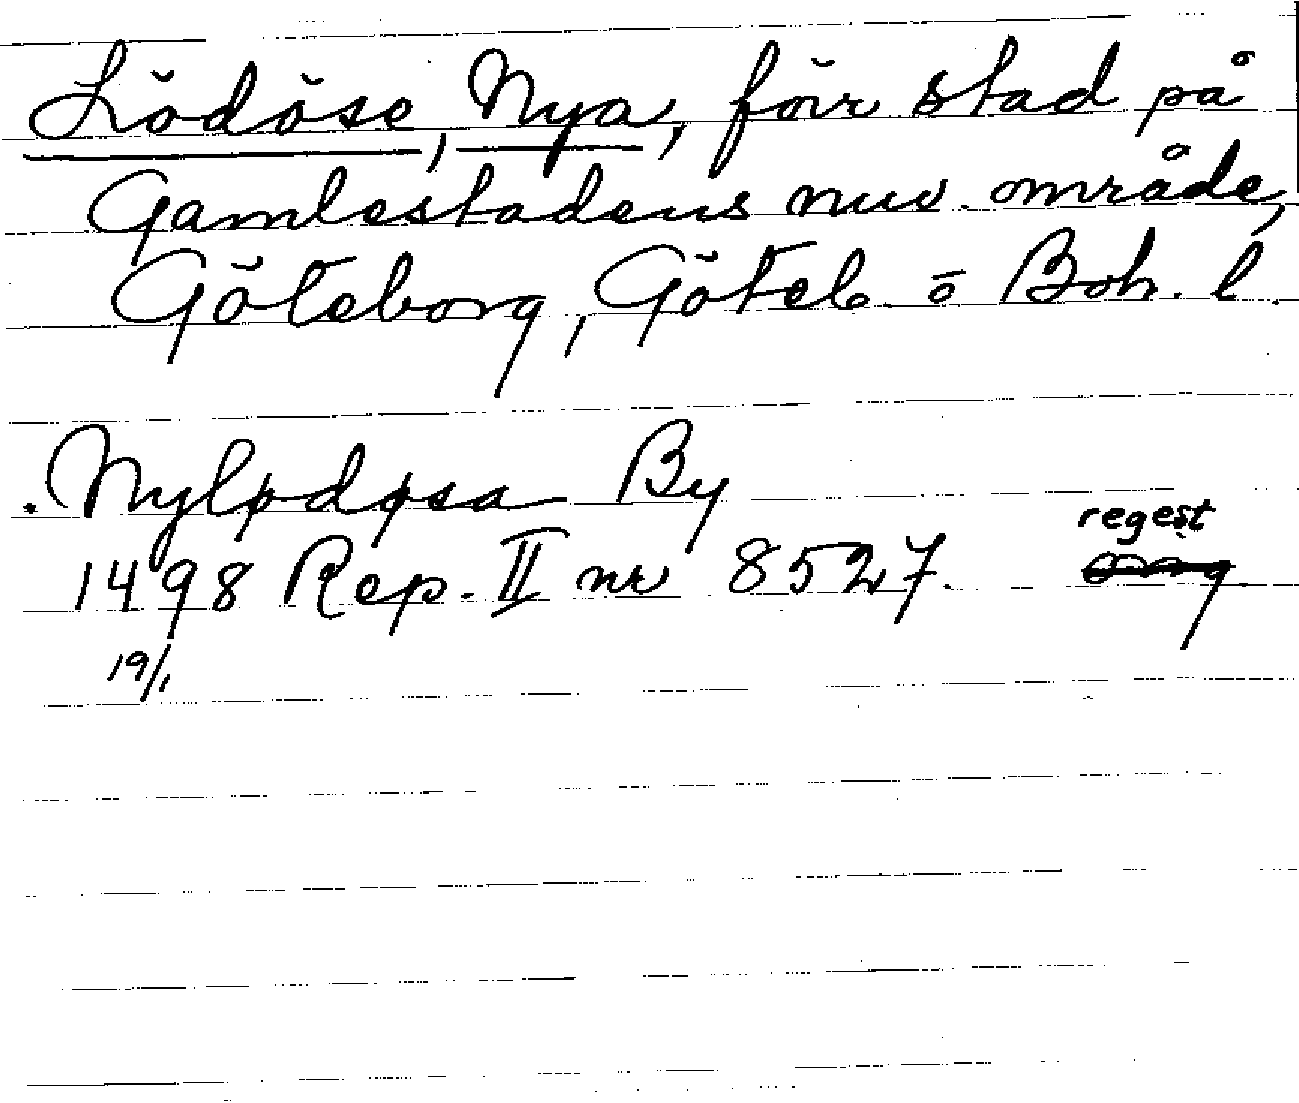 Lödöse, Nya, förr stad på
Gamlestadens nuv. område,
Göteborg, Göteb. o Boh. l.
Nylødøsa By
regest
1498 Rep. II nr 8527.
19/1